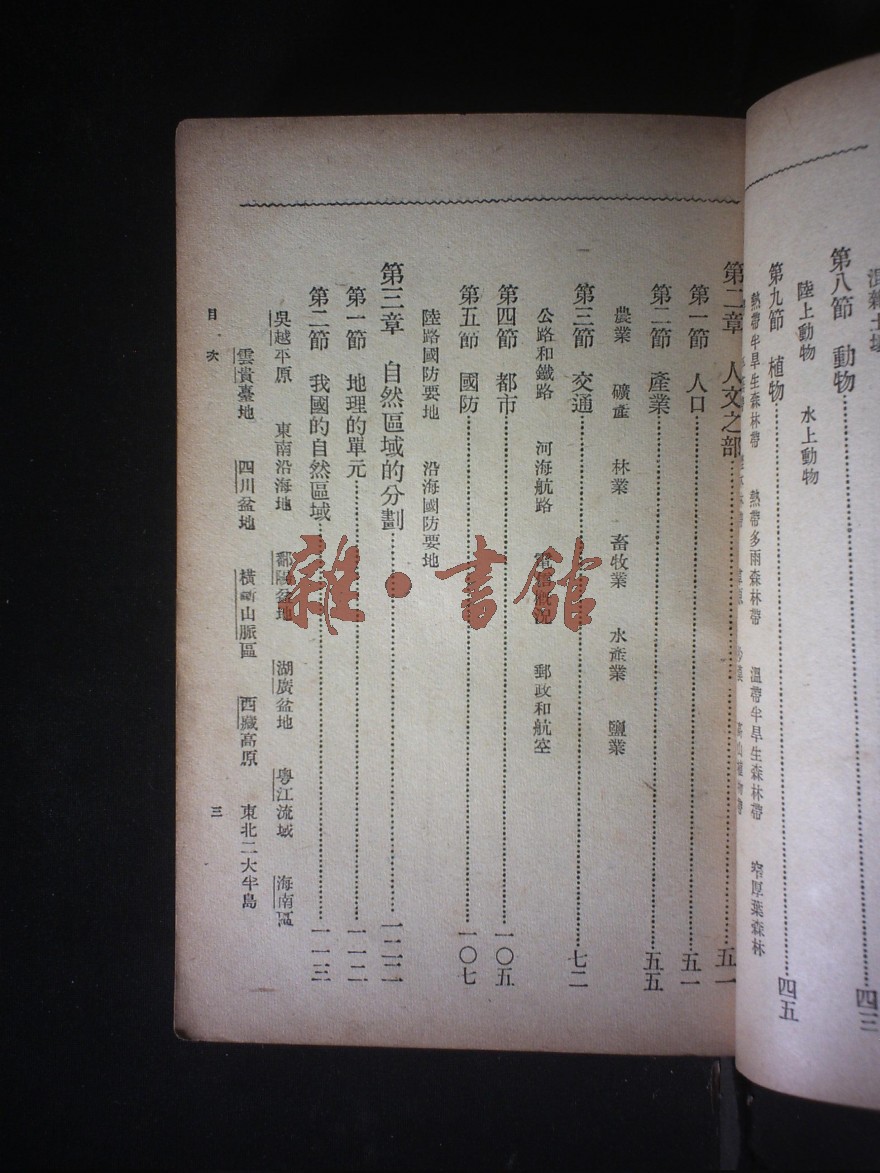 第八節 動物 四三
陸上動物 水上動物
第九節 植物 四五
熱帶半旱生森林帶 熱帶多雨森林帶 溫帶半旱生森林帶 窄厚葉森林
第二章 人文之部 五一
第一節 人口 五一
第二節 產業 五五
農業 礦產 林業 畜牧業 水產業 鹽業
第三節 交通 七二
公路和鐵路 河海航路 電信概況 郵政和航空
第四節 都市 一〇五
第五節 國防 一〇七
陸路國防要地 沿海國防要地
第三章 自然區域的分劃 一一二
第一節 地理的單元 一一二
第二節 我國的自然區域 一一三
吳越平原 東南沿海地 鄱陽盆地 湖廣盆地 粵江流域 海南區
雲貴臺地 四川盆地 橫斷山脈區 西藏高原 東北二大半島
目次
三
雜·書館